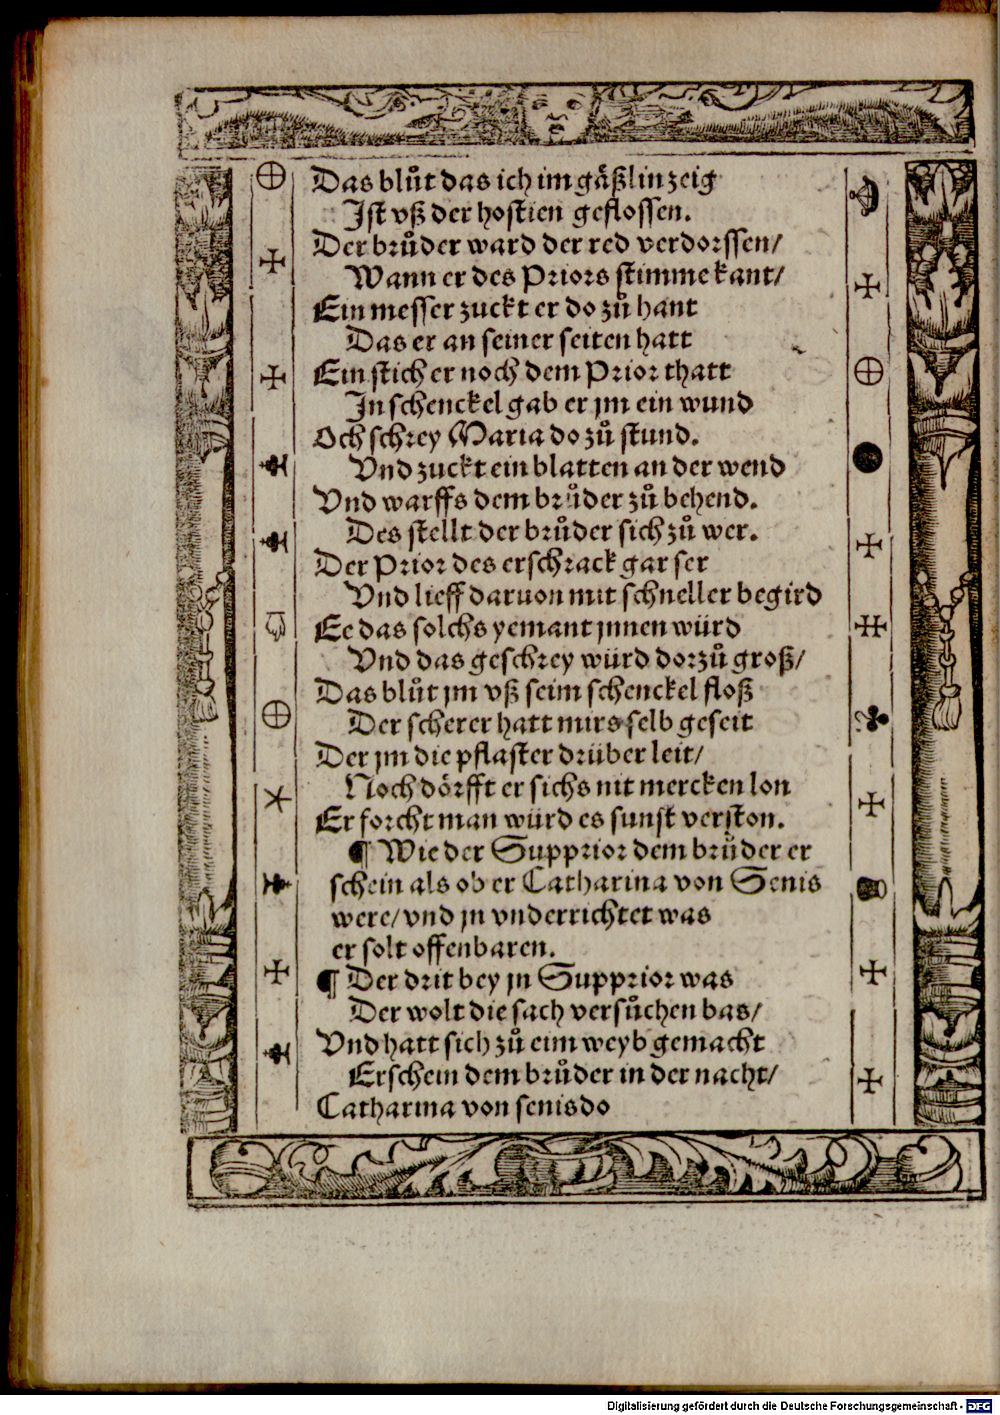 Das blůt das ich im gäßlin zeig
Ist vß der hostien geflossen.
Der brůder ward der red verdorssen/
Wann er des Priors stimme kant/
Ein messer zuckt er do zů hant
Das er an seiner seiten hatt
Ein stich er noch dem Prior thatt
In schenckel gab er jm ein wund
Och schrey Maria do zů stund.
Vnd zuckt ein blatten an der wend
Vnd warffs dem brůder zů behend.
Des stellt der brůder sich zů wer.
Der Prior des erschrack gar ser
Vnd lieff daruon mit schneller begird
Ee das solchs yemant jnnen würd
Vnd das geschrey würd dorzů groß/
Das blůt jm vß seim schenckel floß
Der scherer hatt mirs selb geseit
Der jm die pflaster drüber leit/
Noch dörfft er sichs nit mercken lon
Er forcht man würd es sunst verston.
¶ Wie der Supprior dem brůder er
schein als ob er Catharina von Senis
were/ vnd jn vnderrichtet was
er solt offenbaren.
¶ Der drit bey jn Supprior was
Der wolt die sach versůchen bas/
Vnd hatt sich zů eim weyb gemacht
Erschein dem brůder in der nacht/
Catharina von senis do
Digitalisierung gefördert durch die Deutsche Forschungsgemeinschaft - DFG